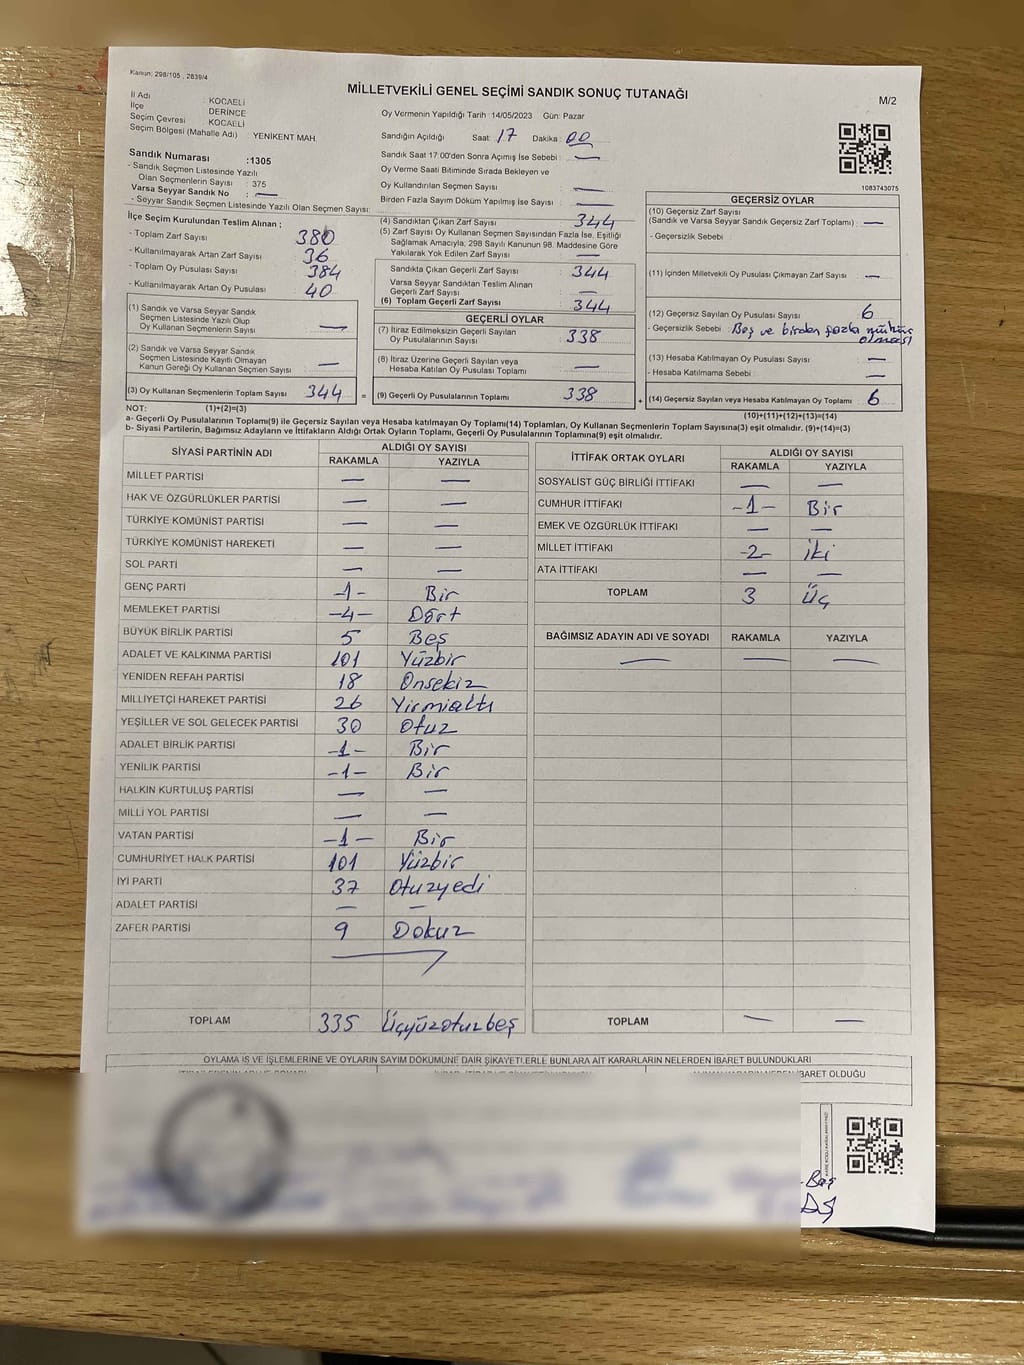 Kanun: 298/105 , 2839/4
MİLLETVEKİLİ GENEL SEÇİMİ SANDIK SONUÇ TUTANAĞI
M/2
İl Adı : KOCAELİ
İlçe : DERİNCE
Seçim Çevresi : KOCAELİ
Seçim Bölgesi (Mahalle Adı) : YENİKENT MAH.
Oy Vermenin Yapıldığı Tarih :14/05/2023 Gün: Pazar
Sandığın Açıldığı Saat: 17 Dakika: 00
Sandık Saat 17:00'den Sonra Açımış İse Sebebi : —
Oy Verme Saati Bitiminde Sırada Bekleyen ve
Oy Kullandırılan Seçmen Sayısı : —
Birden Fazla Sayım Döküm Yapılmış İse Sayısı : —
1083743075
Sandık Numarası :1305
- Sandık Seçmen Listesinde Yazılı
Olan Seçmenlerin Sayısı : 375
Varsa Seyyar Sandık No : —
- Seyyar Sandık Seçmen Listesinde Yazılı Olan Seçmen Sayısı:
İlçe Seçim Kurulundan Teslim Alınan ;
- Toplam Zarf Sayısı : 380
- Kullanılmayarak Artan Zarf Sayısı : 36
- Toplam Oy Pusulası Sayısı : 384
- Kullanılmayarak Artan Oy Pusulası : 40
(1) Sandık ve Varsa Seyyar Sandık
Seçmen Listesinde Yazılı Olup
Oy Kullanan Seçmenlerin Sayısı : —
(2) Sandık ve Varsa Seyyar Sandık
Seçmen Listesinde Kayıtlı Olmayan
Kanun Gereği Oy Kullanan Seçmen Sayısı : —
(3) Oy Kullanan Seçmenlerin Toplam Sayısı : 344 =
(4) Sandıktan Çıkan Zarf Sayısı : 344
(5) Zarf Sayısı Oy Kullanan Seçmen Sayısından Fazla İse, Eşitliği
Sağlamak Amacıyla, 298 Sayılı Kanunun 98. Maddesine Göre
Yakılarak Yok Edilen Zarf Sayısı : —
Sandıkta Çıkan Geçerli Zarf Sayısı : 344
Varsa Seyyar Sandıktan Teslim Alınan
Geçerli Zarf Sayısı : —
(6) Toplam Geçerli Zarf Sayısı : 344
GEÇERLİ OYLAR
(7) İtiraz Edilmeksizin Geçerli Sayılan
Oy Pusulalarının Sayısı : 338
(8) İtiraz Üzerine Geçerli Sayılan veya
Hesaba Katılan Oy Pusulası Toplamı : —
(9) Geçerli Oy Pusulalarının Toplamı : 338 +
GEÇERSİZ OYLAR
(10) Geçersiz Zarf Sayısı
(Sandık ve Varsa Seyyar Sandık Geçersiz Zarf Toplamı) : —
- Geçersizlik Sebebi :
(11) İçinden Milletvekili Oy Pusulası Çıkmayan Zarf Sayısı : —
(12) Geçersiz Sayılan Oy Pusulası Sayısı : 6
- Geçersizlik Sebebi : Boş ve birden fazla mühür
olması
(13) Hesaba Katılmayan Oy Pusulası Sayısı : —
- Hesaba Katılmama Sebebi : —
(14) Geçersiz Sayılan veya Hesaba Katılmayan Oy Toplamı : 6
NOT: (1)+(2)=(3)
(10)+(11)+(12)+(13)=(14)
a- Geçerli Oy Pusulalarının Toplamı(9) ile Geçersiz Sayılan veya Hesaba katılmayan Oy Toplamı(14) Toplamları, Oy Kullanan Seçmenlerin Toplam Sayısına(3) eşit olmalıdır. (9)+(14)=(3)
b- Siyasi Partilerin, Bağımsız Adayların ve İttifakların Aldığı Ortak Oyların Toplamı, Geçerli Oy Pusulalarının Toplamına(9) eşit olmalıdır.
SİYASİ PARTİNİN ADI ALDIĞI OY SAYISI
RAKAMLA YAZIYLA
MİLLET PARTİSİ — —
HAK VE ÖZGÜRLÜKLER PARTİSİ — —
TÜRKİYE KOMÜNİST PARTİSİ — —
TÜRKİYE KOMÜNİST HAREKETİ — —
SOL PARTİ — —
GENÇ PARTİ -1- Bir
MEMLEKET PARTİSİ -4- Dört
BÜYÜK BİRLİK PARTİSİ 5 Beş
ADALET VE KALKINMA PARTİSİ 101 Yüzbir
YENİDEN REFAH PARTİSİ 18 Onsekiz
MİLLİYETÇİ HAREKET PARTİSİ 26 Yirmialtı
YEŞİLLER VE SOL GELECEK PARTİSİ 30 Otuz
ADALET BİRLİK PARTİSİ -1- Bir
YENİLİK PARTİSİ -1- Bir
HALKIN KURTULUŞ PARTİSİ — —
MİLLİ YOL PARTİSİ — —
VATAN PARTİSİ -1- Bir
CUMHURİYET HALK PARTİSİ 101 Yüzbir
İYİ PARTİ 37 Otuzyedi
ADALET PARTİSİ — —
ZAFER PARTİSİ 9 Dokuz
TOPLAM 335 Üçyüzotuzbeş
İTTİFAK ORTAK OYLARI ALDIĞI OY SAYISI
RAKAMLA YAZIYLA
SOSYALİST GÜÇ BİRLİĞİ İTTİFAKI — —
CUMHUR İTTİFAKI -1- Bir
EMEK VE ÖZGÜRLÜK İTTİFAKI — —
MİLLET İTTİFAKI -2- İki
ATA İTTİFAKI — —
TOPLAM 3 Üç
BAĞIMSIZ ADAYIN ADI VE SOYADI RAKAMLA YAZIYLA
— — —
TOPLAM — —
OYLAMA İŞ VE İŞLEMLERİNE VE OYLARIN SAYIM DÖKÜMÜNE DAİR ŞİKAYETLERLE BUNLARA AİT KARARLARIN NELERDEN İBARET BULUNDUKLARI
İBARET OLDUĞU